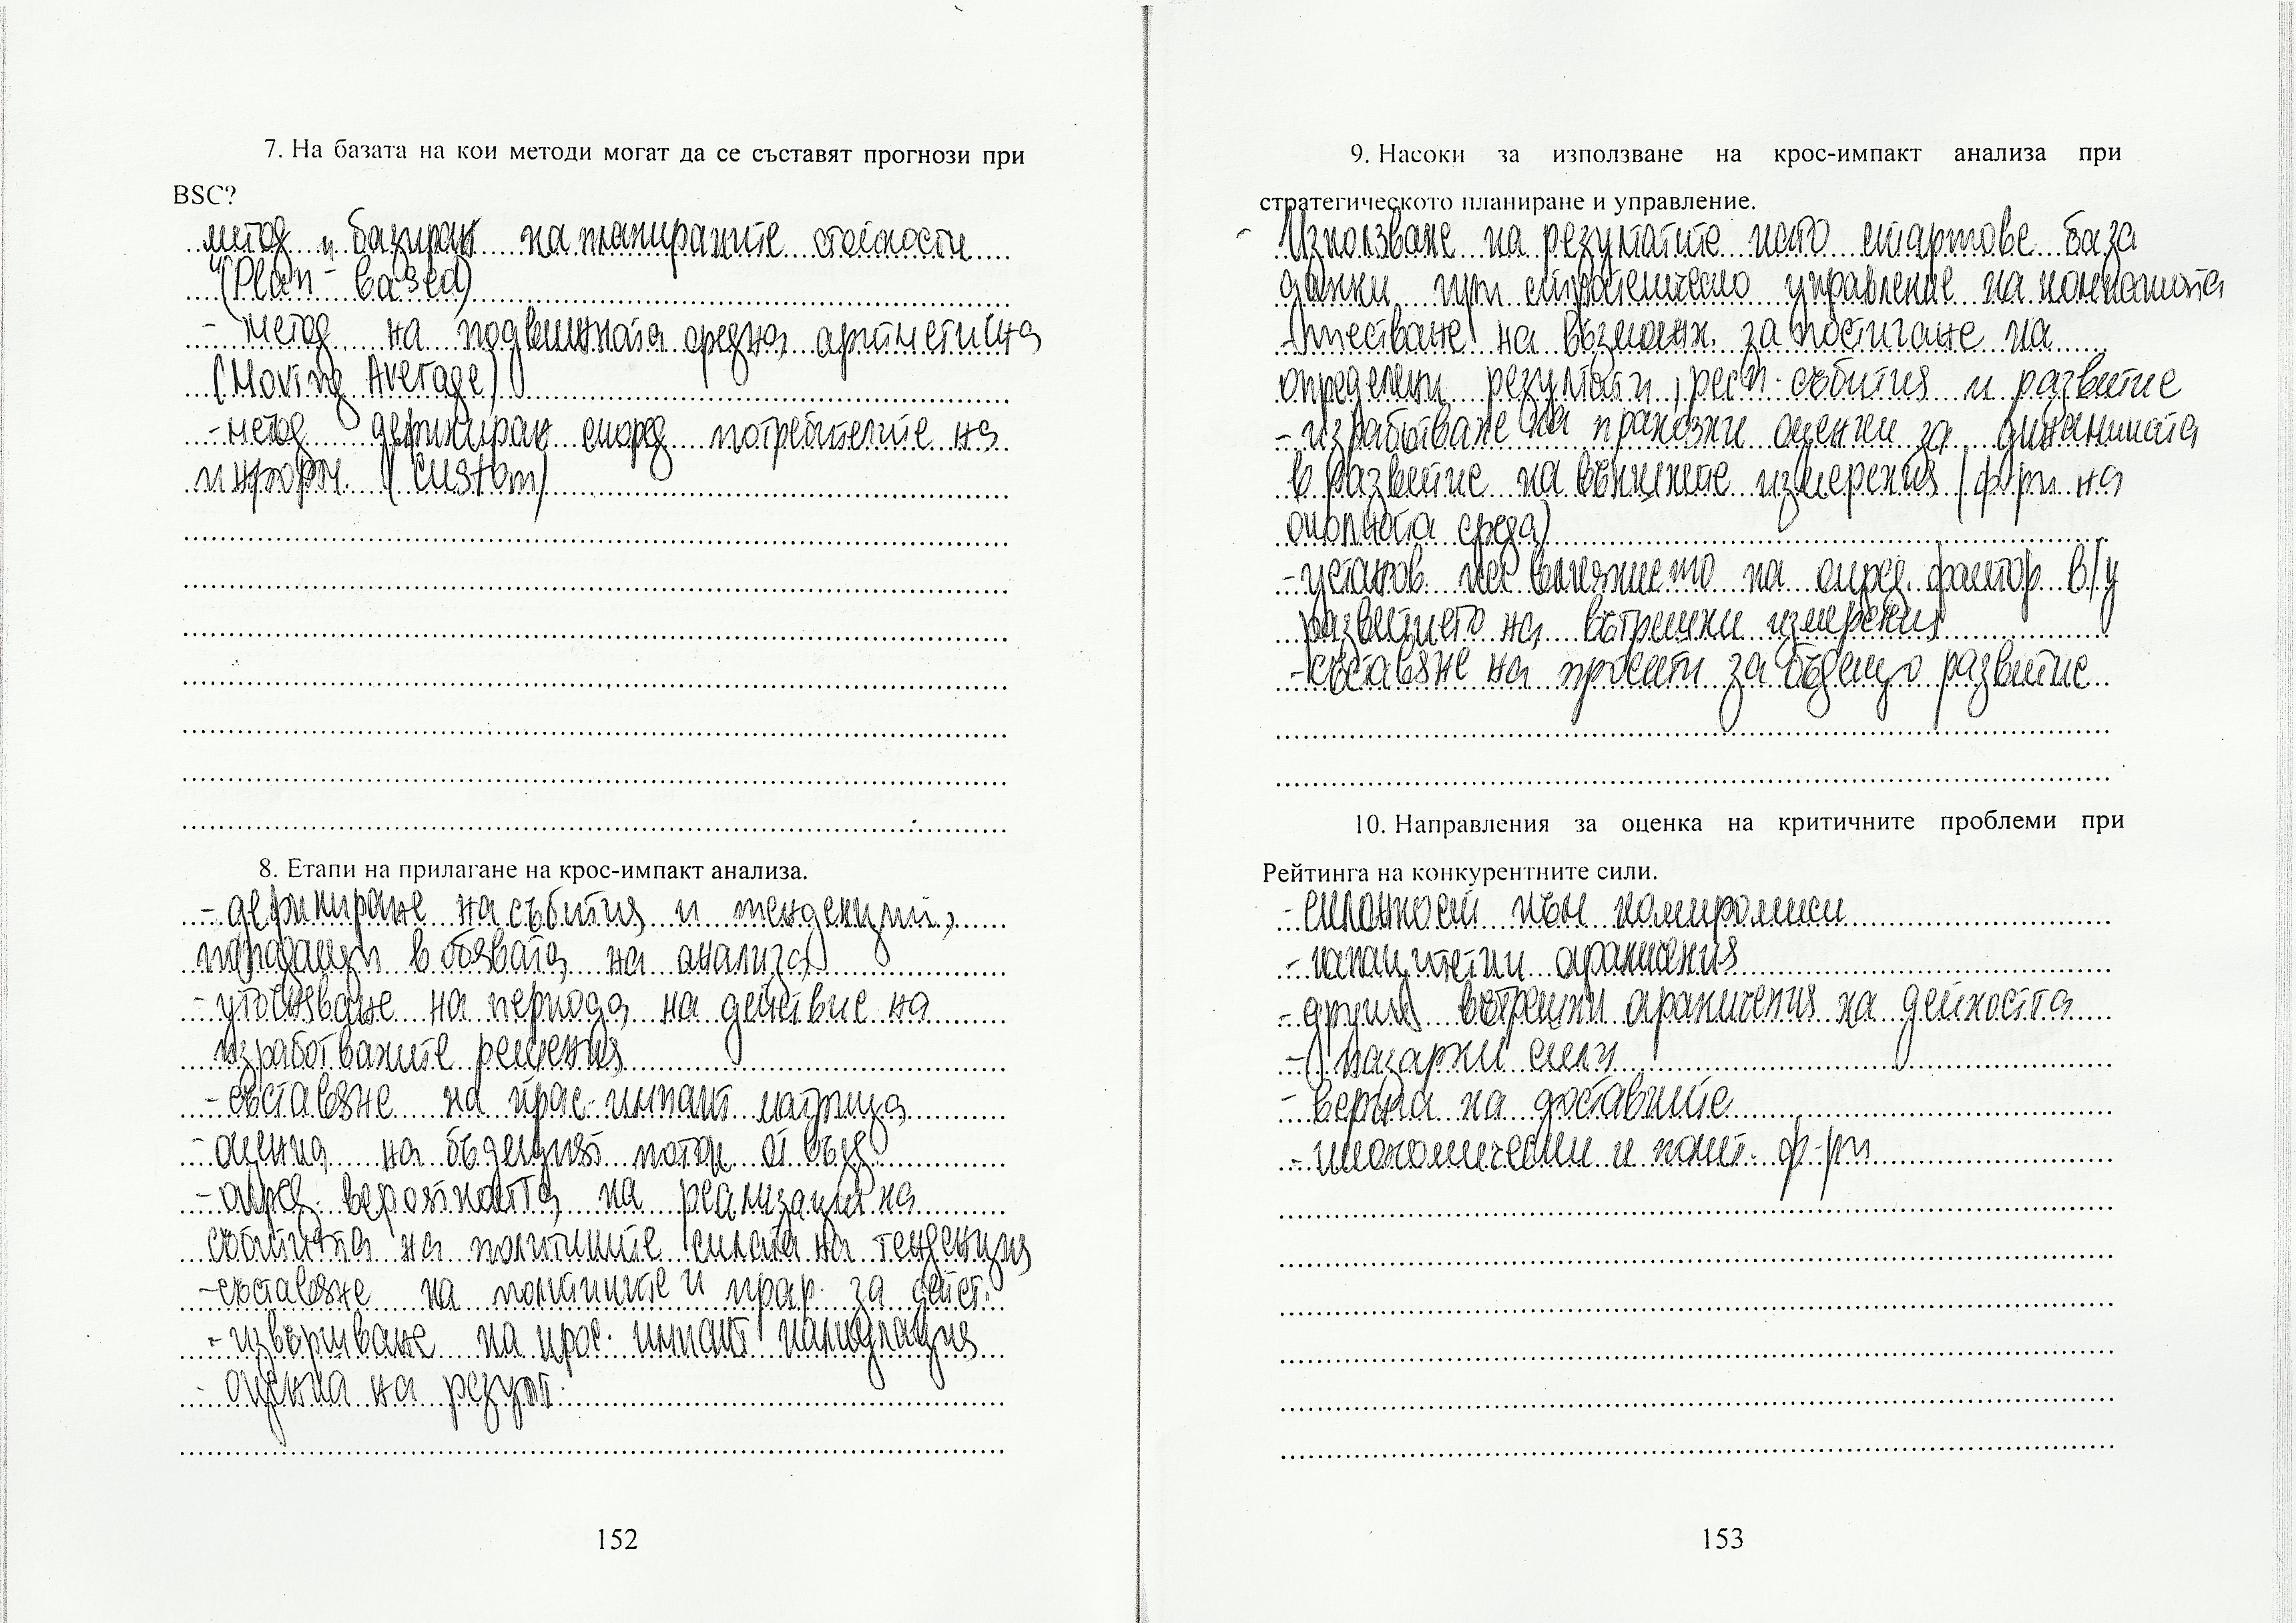 7. На базата на кои методи могат да се съставят прогнози при
BSC?
метод, базиран на планираните стойности
(Plan-based)
- метод на подвижната средна аритметична
(Moving Average)
- метод дефиниран според потребителите на
информ. (Custom)
8. Етапи на прилагане на крос-импакт анализа.
- дефиниране на събития и тенденции,
попадащи в обхвата на анализа
- уточняване на периода на действие на
изработваните решения
- съставяне на крос-импакт матрица
- оценка на бъдещият поток от възд.
- опред. вероятността на реализация на
събитията на политиките силата на тенденция
- съставяне на политиките и прогр. за дейст.
- извършване на крос-импакт калкулация
- оценка на резулт.
152
9. Насоки за използване на крос-импакт анализа при
стратегическото планиране и управление.
- Използване на резултатите като стартове база
данни при стратегическо управление на компанията
- тестване на възможн. за постигане на
определени резултати, респ. събития и развитие
- изработване на прогнозни оценки за динамиката
в развитие на външните измерения (ф-ри на
околната среда)
- установ. на влиянието на опред. фактор в/у
развитието на вътрешни измерения
- съставяне на проекти за бъдещо развитие
10. Направления за оценка на критичните проблеми при
Рейтинга на конкурентните сили.
- склонност към компромиси
- капацитетни ограничения
- други вътрешни ограничения на дейността
- пазарни сили
- верига на доставките
- икономически и полит. ф-ри
153